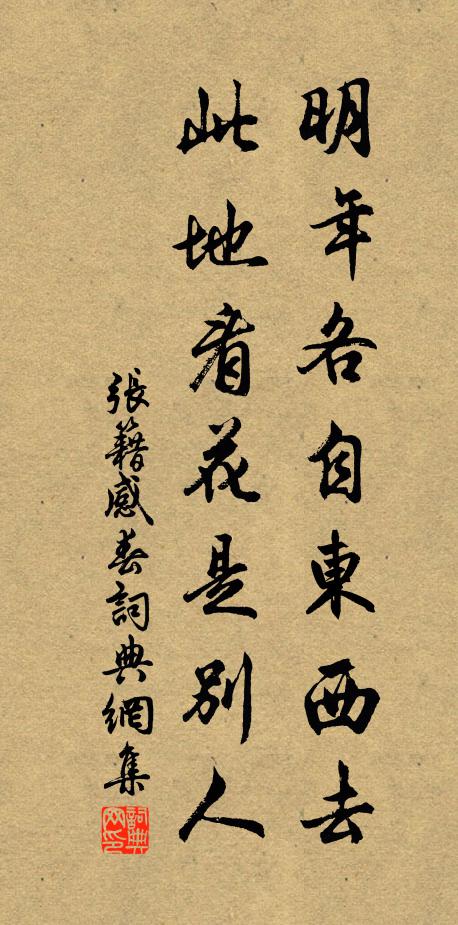 明年各自東西去
此地看花是別人
張籍感春詞典網集
詞典網印